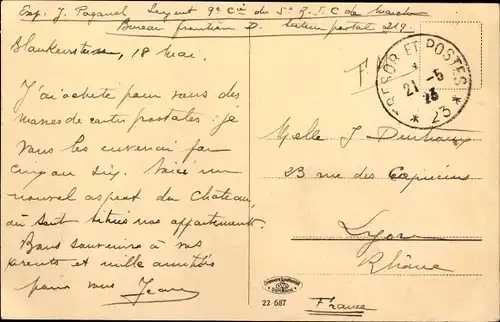 Exp. J. Paganel Sergent 9e Cie du 5e R. S. C de Marche
Bureau frontière D. Secteur postal 219.
Blankenstein, 18 mai.
J'ai acheté pour vous des
masses de cartes postales : je
vous les enverrai par
cinq ou six. Voici un
nouvel aspect du château,
où sont situés nos appartements.
Bons souvenirs à vos
parents et mille amitiés
pour vous Jean
F.
TRESOR ET POSTES
21-5
23
* 23 *
Melle J
23 rue des Capucins
Lyon
Rhône
France
22 687